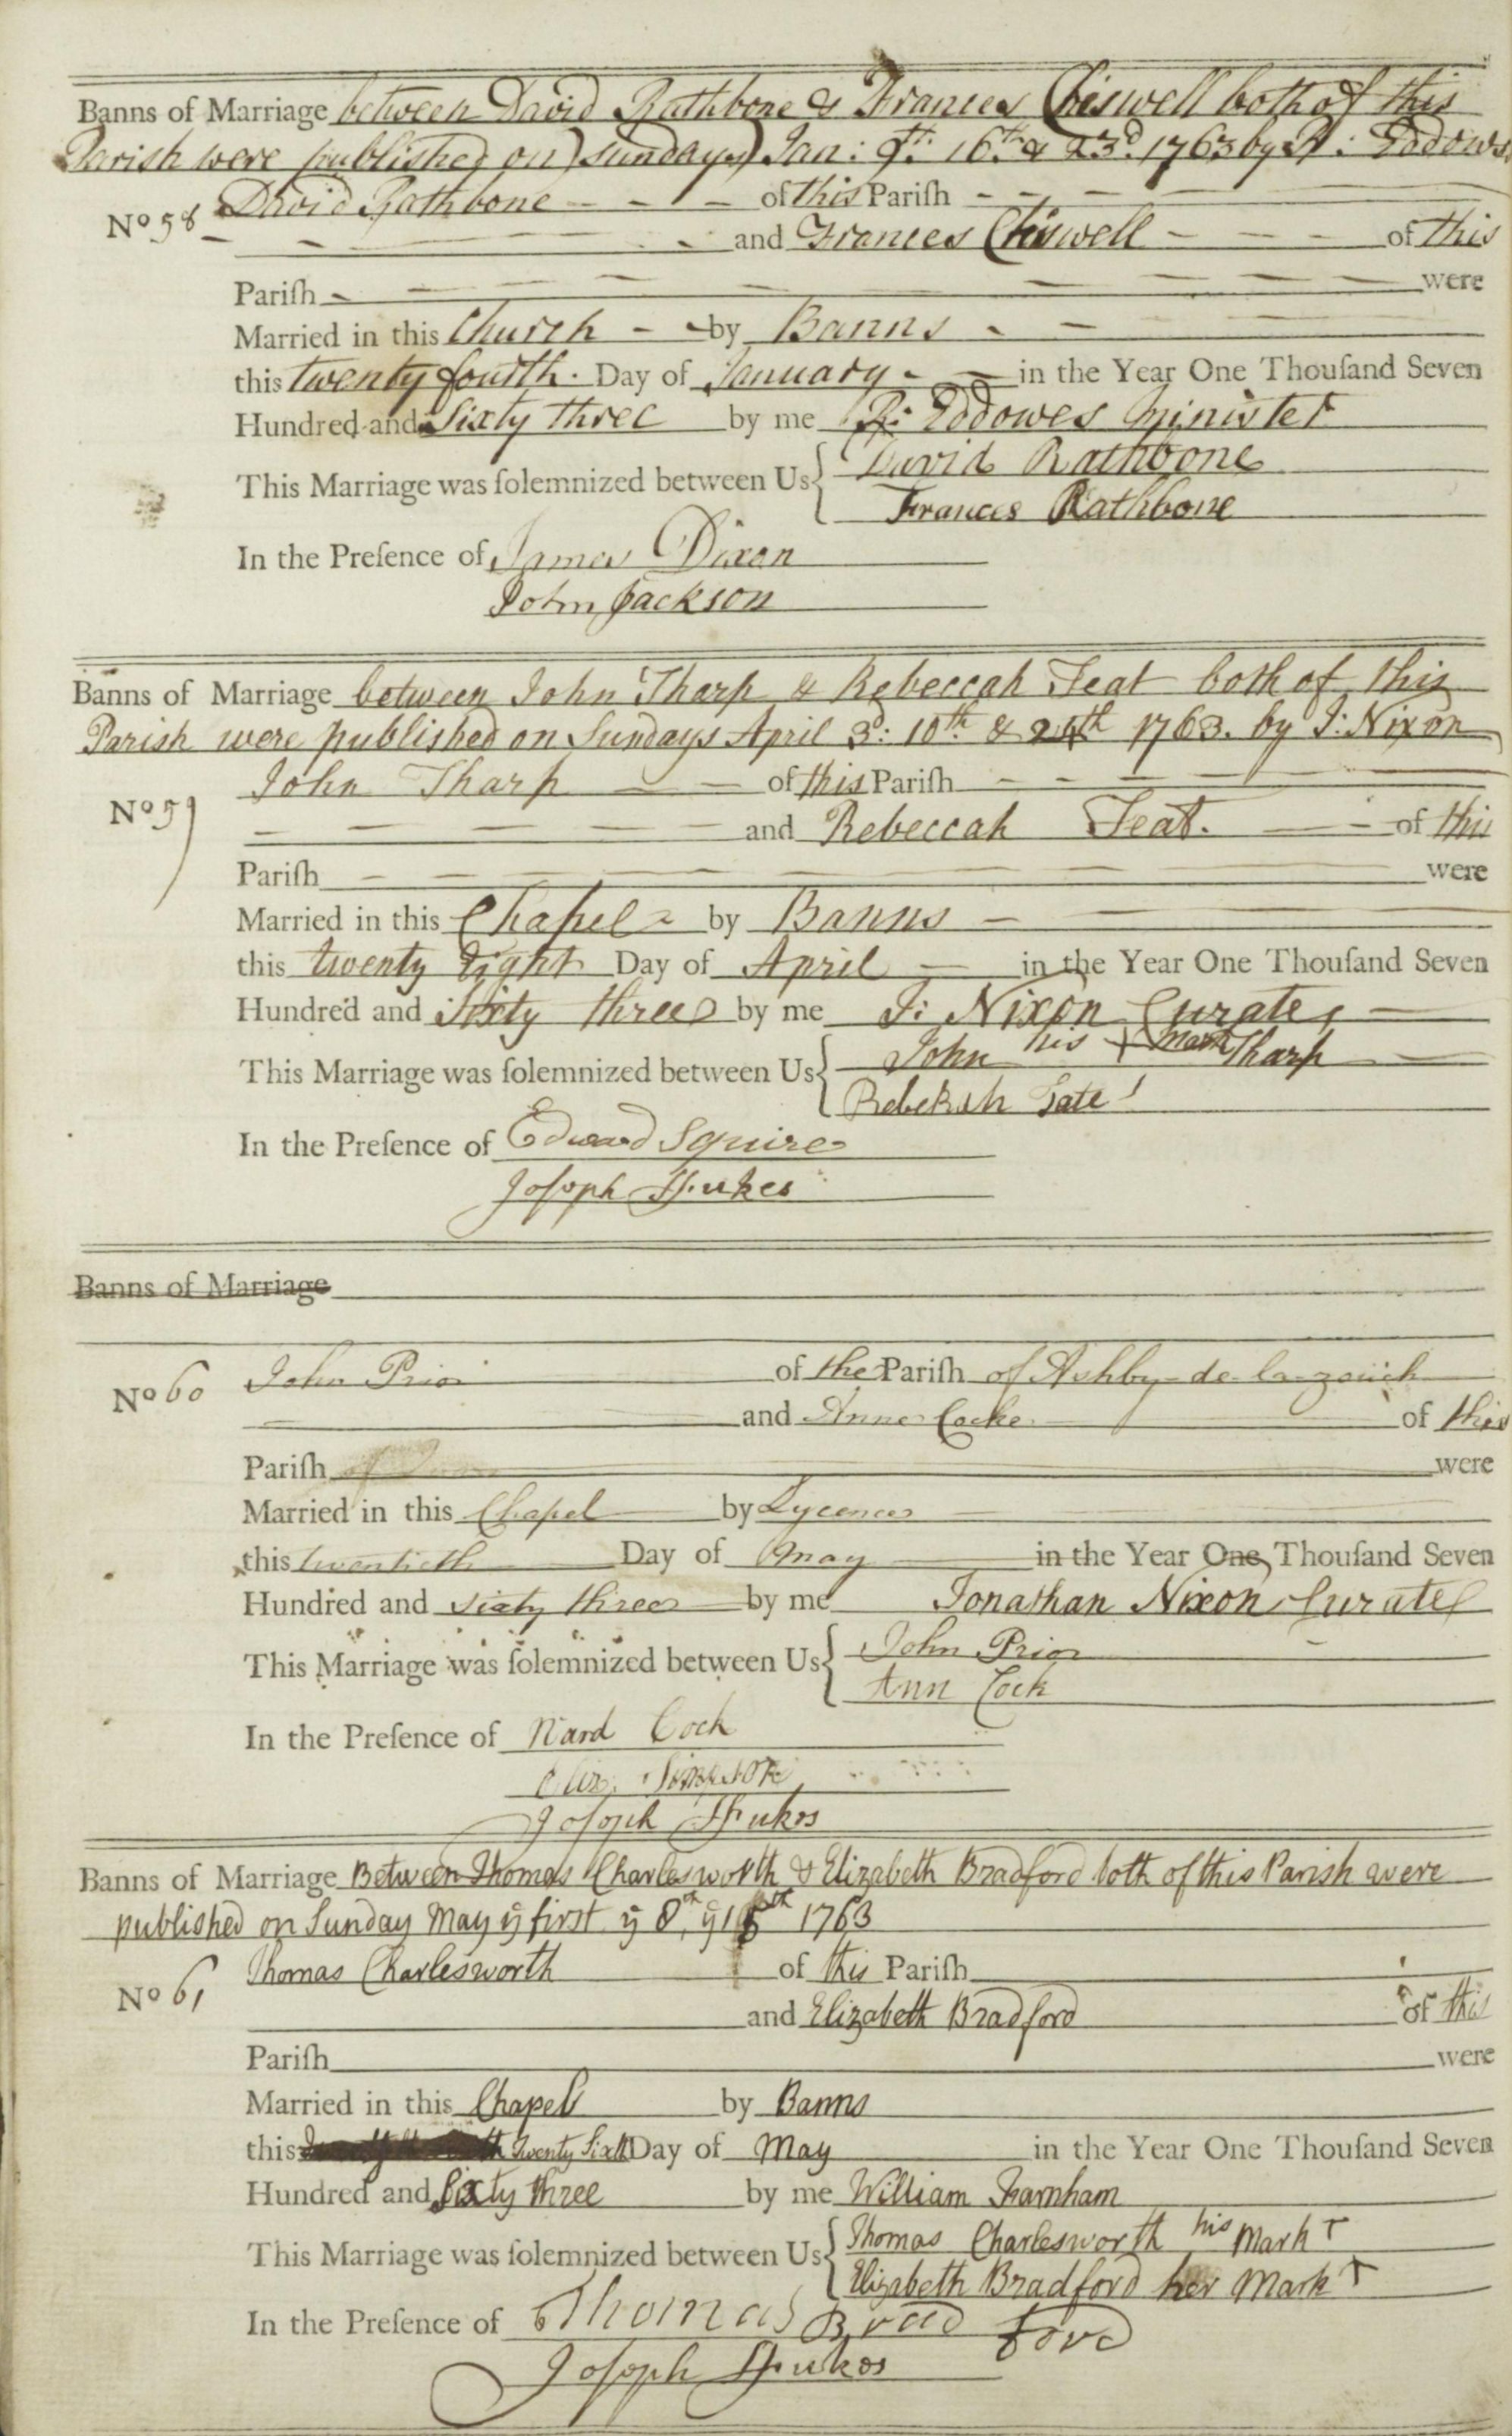 Banns of Marriage between David Rathbone & Frances Chiswell both of this
Parish were published on Sundays Jan: 9th: 16th & 23d. 1763 by R: Eddowes
No 58 David Rathbone of this Pariſh
and Frances Chiswell of this
Pariſh were
Married in this Church by Banns
this twenty fourth. Day of January in the Year One Thouſand Seven
Hundred and Sixty three by me R: Eddowes Minister
This Marriage was ſolemnized between Us David Rathbone
Frances Rathbone
In the Preſence of James Dixon
John Jackson
Banns of Marriage between John Tharp & Rebeccah Teat both of this
Parish were published on Sundays April 3d: 10th & 24th 1763. by J: Nixon
John Tharp of this Pariſh
No 59
and Rebeccah Teat. of this
Pariſh were
Married in this Chapel by Banns
this twenty Eight Day of April in the Year One Thouſand Seven
Hundred and Sixty three by me J: Nixon Curate,
This Marriage was ſolemnized between Us John his + mark Tharp
Rebekah Tate
In the Preſence of Edward Squire
Joſoph
Banns of Marriage
No 60 John Prior of the Pariſh of Ashby-de-la-zouch
and Anne Cocke of this
Pariſh of were
Married in this Chapel by Lycence
this twentieth Day of May in the Year One Thouſand Seven
Hundred and sixty three by me Jonathan Nixon Curate
This Marriage was ſolemnized between Us John Prior
Ann Cock
In the Preſence of Cock
Joſoph
Banns of Marriage Between Thomas Charlesworth & Elizabeth Bradford both of this Parish were
published on Sunday May ÿ first ÿ 8th, ÿ 15th 1763
No 61 Thomas Charlesworth of this Pariſh
and Elizabeth Bradford of this
Pariſh were
Married in this Chapel by Banns
this Twenty Sixth Day of May in the Year One Thouſand Seven
Hundred and Sixty three by me William Farnham
This Marriage was ſolemnized between Us Thomas Charlesworth his Mark T
Elizabeth Bradford her Mark T
In the Preſence of Thomas Brad ford
Joſoph